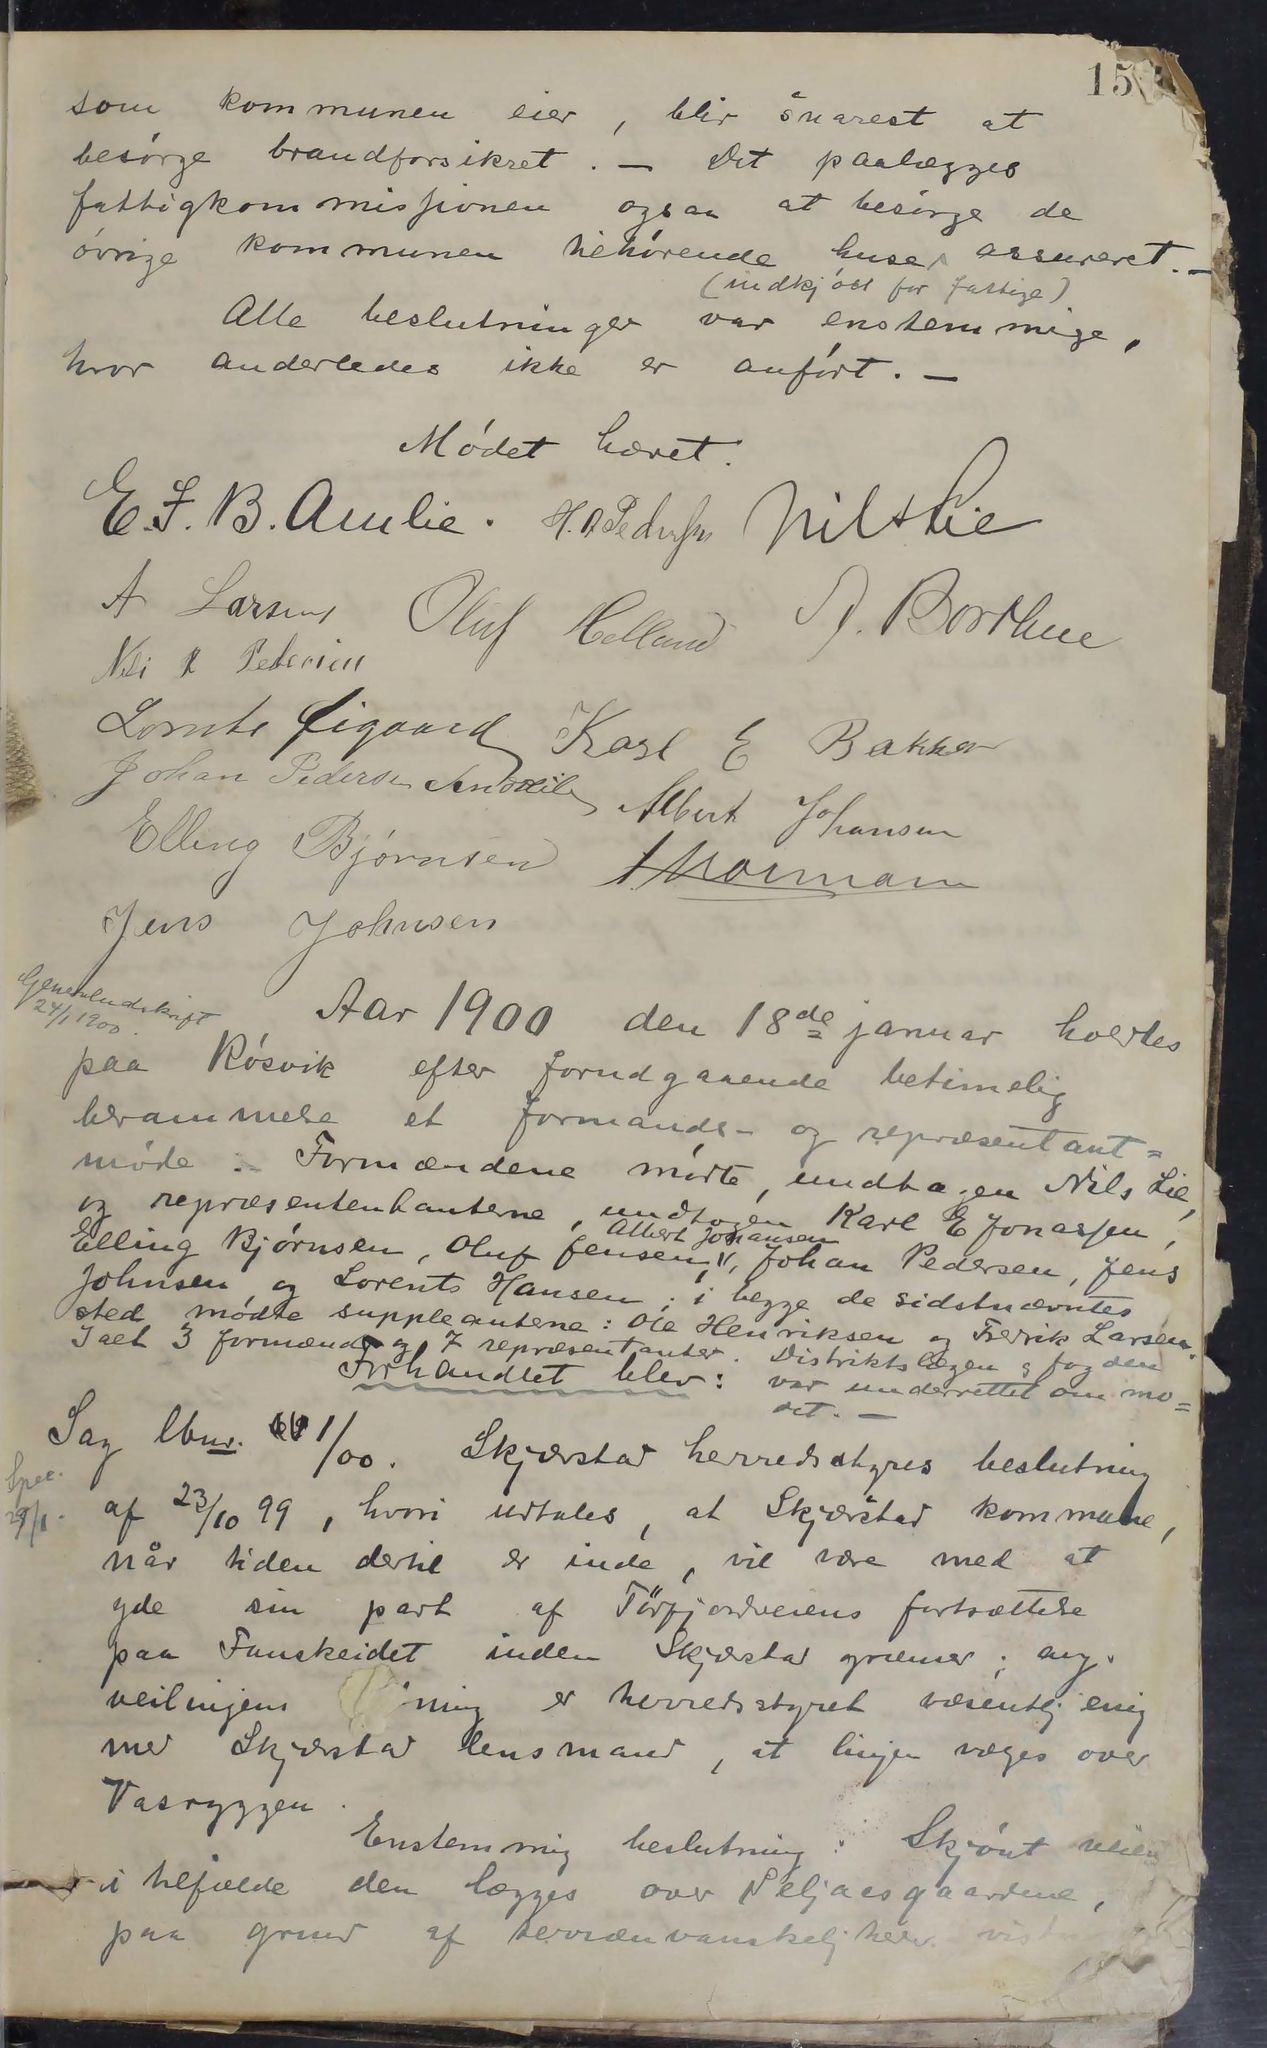 15
som kommunen eier, blir snarest at
besørge brandforsikret. — Det paalægges
fattigkommissionen ogsaa at besørge de
øvrige kommunen tilhørende huse, assureret. —
(indkjøbt for fattige)
Alle beslutninger var enstemmige,
hvor anderledes ikke er anført. —
Mødet hævet.
E. F. B. Amlie. H. A. Pedersen Nils Lie
A Larsen Oluf Helland A. Borthne
Pedersen
Lornts Øigaard Karl E Bakken
Johan Pedersen Albert Johansen
Elling Bjørnsen
Jens Johnsen
Genemludskrift
24/1 1900.
Aar 1900 den 18de januar holdtes
paa Røsvik efter forudgaaende betimelig
berammelse et formands- og repræsentant=
møde. Formændene mødte, undtagen Nils Lie,
og repræsententanterne, undtagen Karl E Jonassen,
Albert Johansen
Elling Bjørnsen, Oluf Jensen, Johan Pedersen, Jens
Johnsen og Lorents Hansen; i begge de sidstnævntes
sted mødte suppleanterne: Ole Henriksen og Fredrik Larsen.
Ialt 3 formænd og 7 repræsentanter. Distriktslægen & fogden
Forhandlet blev: var underrettet om mø=
det. —
Sag lbnr. 1/00. Skjærstad herredsstyres beslutning
Spec.
29/1.
af 23/10 99, hvori udtales, at Skjærstad kommune,
når tiden dertil er inde, vil være med at
yde sin part af Tørfjordveiens fortsættelse
paa Fauskeidet inden Skjærstad grænser; ang.
veilinjens ning er herredsstyret væsentlj enig
med Skjærstad lensmand, at linjen vægес over
Vasryggen.
Enstemmig beslutning: Skjønt veien
i tilfælde den lægges over Seljaasgaardene,
paa grund af terrænvanskeljheder